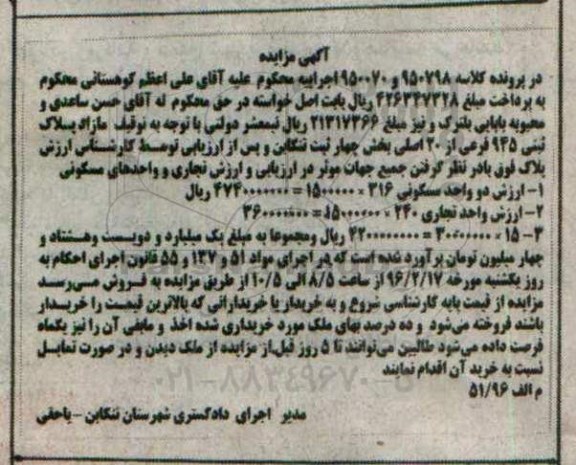 آگهی مزایده
در پرونده کلاسه ۹۵۰۷۹۸ و ۹۵۰۰۷۰ اجراییه محکوم علیه آقای علی اعظم کوهستانی محکوم
به پرداخت مبلغ ۴۲۶۳۴۷۳۲۸ ریال بابت اصل خواسته در حق محکوم له آقای حسن ساعدی و
محبوبه بابایی پلترک و نیز مبلغ ۲۱۳۱۷۳۶۶ ریال نیمعشر دولتی با توجه به توقیف مازاد پلاک
ثبتی ۹۴۵ فرعی از ۲۰ اصلی بخش چهار ثبت تنکابن و پس از ارزیابی توسط کارشناسی ارزش
پلاک فوق بادر نظر گرفتن جمیع جهات موثر در ارزیابی و ارزش تجاری و واحدهای مسکونی
۱- ارزش دو واحد مسکونی ۳۱۶ × ۱۵۰۰۰۰۰۰ = ۴۷۴۰۰۰۰۰۰۰ ریال
۲- ارزش واحد تجاری ۲۴۰ × ۱۵۰۰۰۰۰۰ = ۳۶۰۰۰۰۰۰۰۰
۳- ۱۵ × ۳۰۰۰۰۰۰۰۰ = ۴۲۰۰۰۰۰۰۰۰ ریال ومجموعا به مبلغ یک میلیارد و دویست وهشتاد و
چهار میلیون تومان برآورد شده است که در اجرای مواد ۵۱ و ۱۳۷ و ۵۵ قانون اجرای احکام به
روز یکشنبه مورخه ۹۶/۲/۱۷ از ساعت ۸/۵ الی ۱۰/۵ از طریق مزایده به فروش می‌رسد
مزایده از قیمت پایه کارشناسی شروع و به خریدار یا خریدارانی که بالاترین قیمت را خریدار
باشند فروخته می‌شود و ده درصد بهای ملک مورد خریداری شده اخذ و مابقی آن را نیز یکماه
فرصت داده می‌شود طالبین می‌توانند تا ۵ روز قبل از مزایده از ملک دیدن و در صورت تمایل
نسبت به خرید آن اقدام نمایند
م الف ۵۱/۹۶
مدیر اجرای دادگستری شهرستان تنکابن - یاحقی
۰۲۱-۸۸۳۴۹۶۷۰